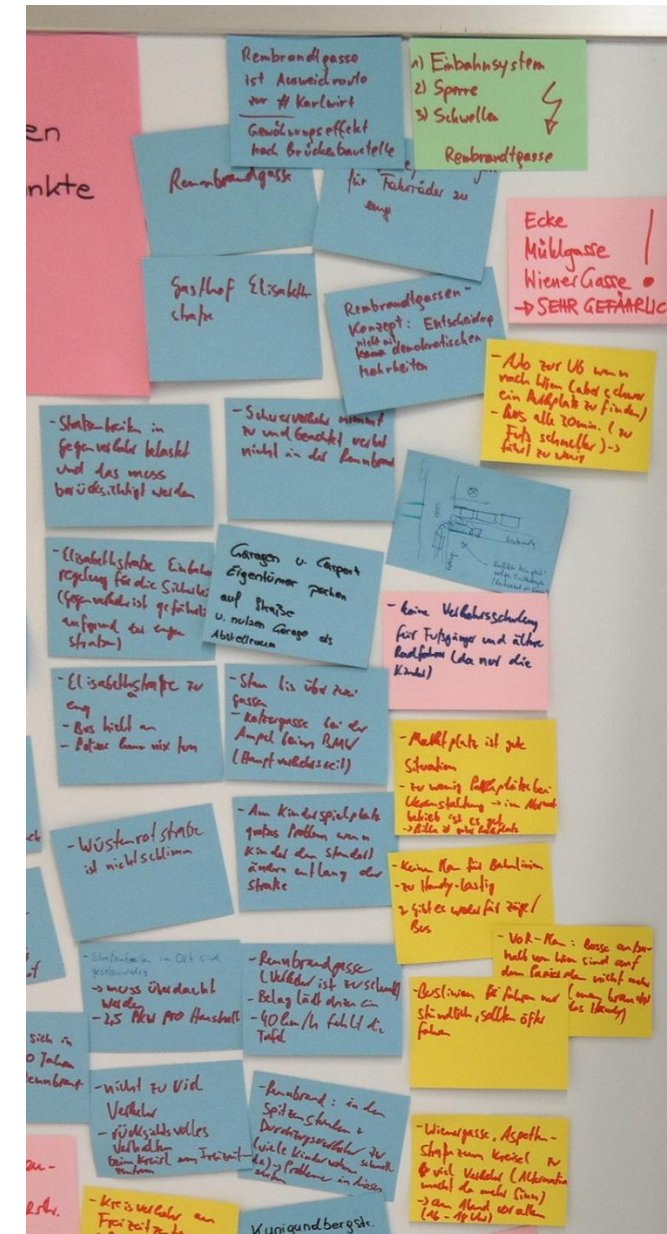 en
nkte
Rembrandtgasse
ist Ausweichroute
zur # Karlwirt
Gewöhnungseffekt
nach Brückenbaustelle
1) Einbahnsystem
2) Sperre
3) Schwellen
Rembrandtgasse
Rennbrandgasse
für Fahrräder zu
eng
Ecke
Mühlgasse
Wiener Gasse !
→ SEHR GEFÄHRLIC
Gasthof Elisabeth
Rembrandtgassen-
Konzept: Entscheidung
nicht mit
demokratischen
Mehrheiten
- Auto zur U6 wenn
nach Wien (aber schwer
ein Parkplatz zu finden)
- Bus alle 20min. (zu
Fuß schneller) →
fährt zu wenig
- Straßenbreite in
Gegenverkehr belastet
und das muss
berücksichtigt werden
- Schwerverkehr nimmt
zu und
nicht in der Rennbrand
- Elisabethstraße Einbahn
regelung für die Sicherhei
(Gegenverkehr ist gefährli
aufgrund der engen
Straßen)
Garagen u. Carport
Eigentümer parken
auf Straße
u. nutzen Garage als
Abstellraum
- keine Verkehrsschulung
für Fußgänger und ältere
Radfahrer (da nur die
Kinder)
- Elisabethstraße zu
eng
- Bus hielt an
- Polizei kann nix tun
- Stau bis über zwei
gassen
bei der
Ampel beim BMW
(Hauptverkehrszeit)
- Marktplatz ist gute
Situation
- zu wenig Parkplätze bei
Veranstaltung → im Normal
betrieb ist es gut
- Wüstenrotstraße
ist nicht schlimm
- Am Kinderspielplatz
großes Problem wenn
Kinder den Standort
ändern entlang der
Straße
- Keinen Plan für Bahnlinien
- zu Handy-lastig
gibt es weder für Züge/
Bus
- Straßenbreiten im Ort sind
→ muss überdacht
werden
- 2,5 PKW PRO Haushalt
- Rennbrandgasse
(Verkehr ist zu schnell)
- Belag lädt dazu ein
- 40 km/h fehlt die
Tafel
- VOR-Plan: Busse außer-
halb von Wien sind auf
dem Papierplan nicht mehr
- Buslinien fahren nur
stündlich, sollten öfter
fahren
sich in
Jahren
- nicht zu viel
Verkehr
- rücksichtsvolles
Verhalten
beim Kreisel am Freizeit-
zentrum
- Rennbrand: in den
Spitzenstunden
Durchzugsverkehr zu
schnell
(viele Kinder wohnen
→ Probleme in diesen
- Wienergasse, Aspetten-
straße zum Kreisel zu
viel Verkehr (Alternative
macht da mehr Sinn)
→ am Abend vor allem
(16 - 18 Uhr)
- Kreisverkehr am
Freizeitze
Kunigundbergstr.